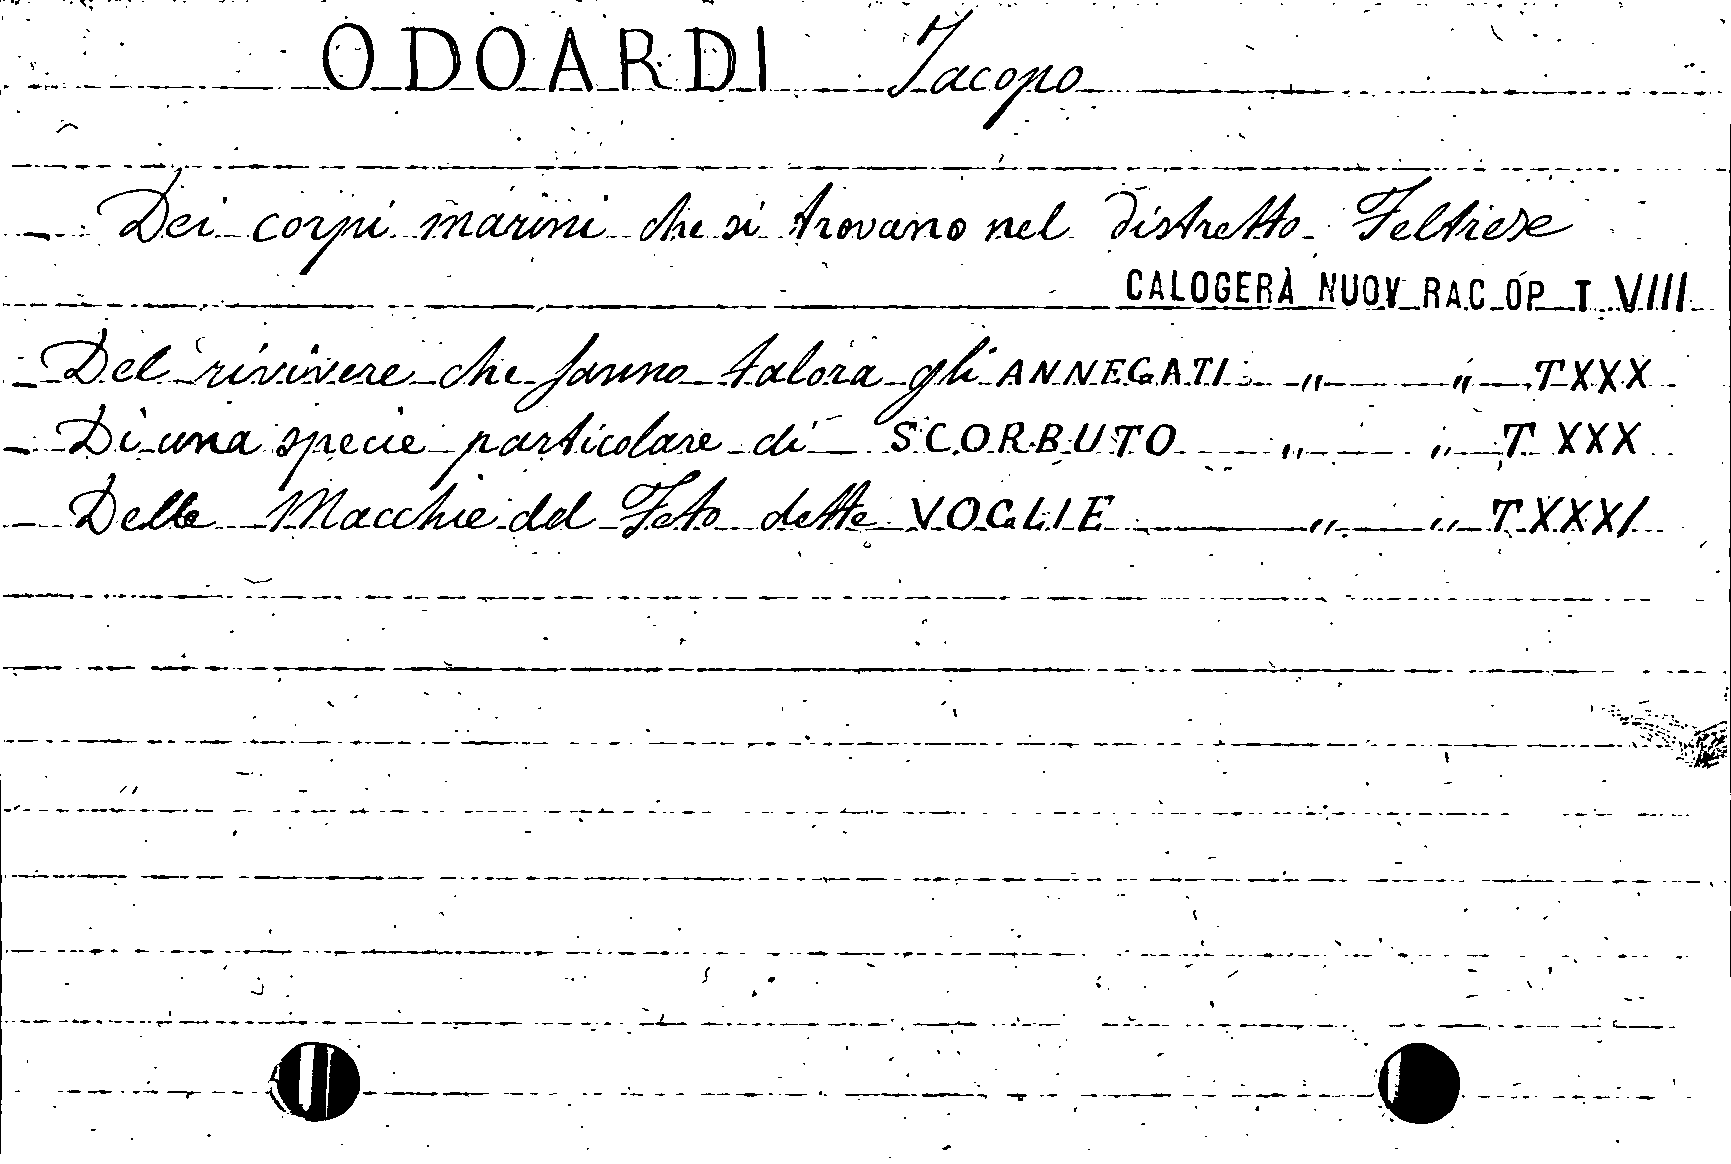 ODOARDI Jacopo
- Dei corpi marini che si trovano nel distretto Feltrese
CALOGERÀ NUOV RAC OP T VIII
- Del rivivere che fanno talora gli ANNEGATI " " T XXX
- Di una specie particolare di SCORBUTO " " T XXX
- Delle Macchie del Feto dette VOGLIE " " T XXXI